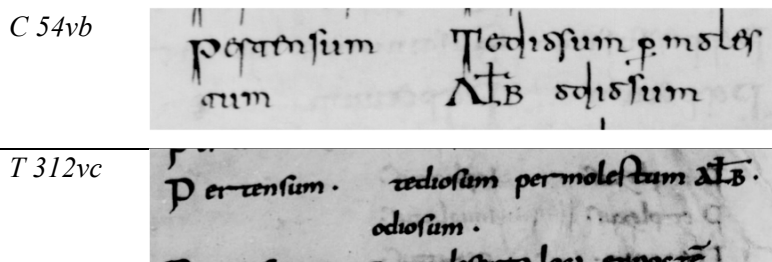 C 54vb
pertensum Tediosum ꝑ moles
tum AŁB odiosum
T 312vc
Pertensum · tediosum permolestum AŁB ·
odiosum ·